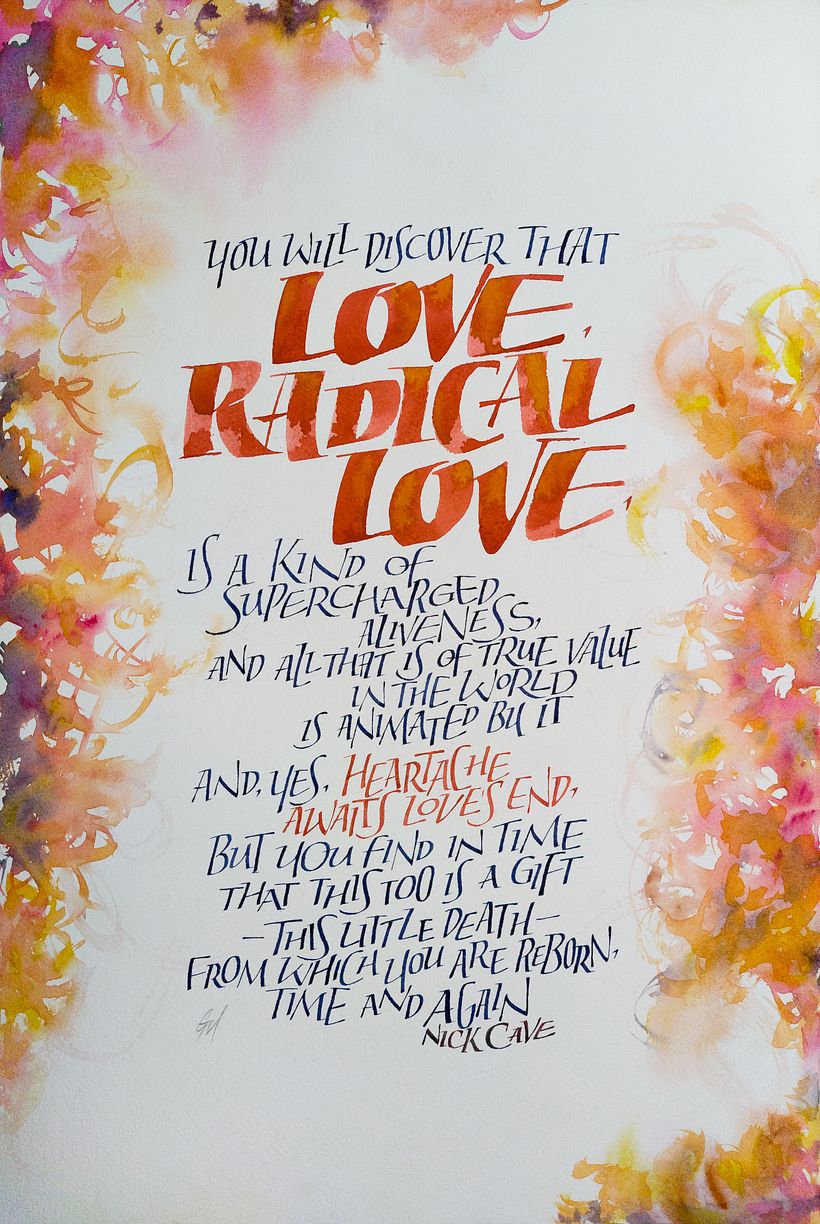 YOU WILL DISCOVER THAT
LOVE,
RADICAL
LOVE,
IS A KIND OF
SUPERCHARGED
ALIVENESS,
AND ALL THAT IS OF TRUE VALUE
IN THE WORLD
IS ANIMATED BY IT
AND, YES, HEARTACHE
AWAITS LOVES END,
BUT YOU FIND IN TIME
THAT THIS TOO IS A GIFT
—THIS LITTLE DEATH—
FROM WHICH YOU ARE REBORN,
TIME AND AGAIN
NICK CAVE